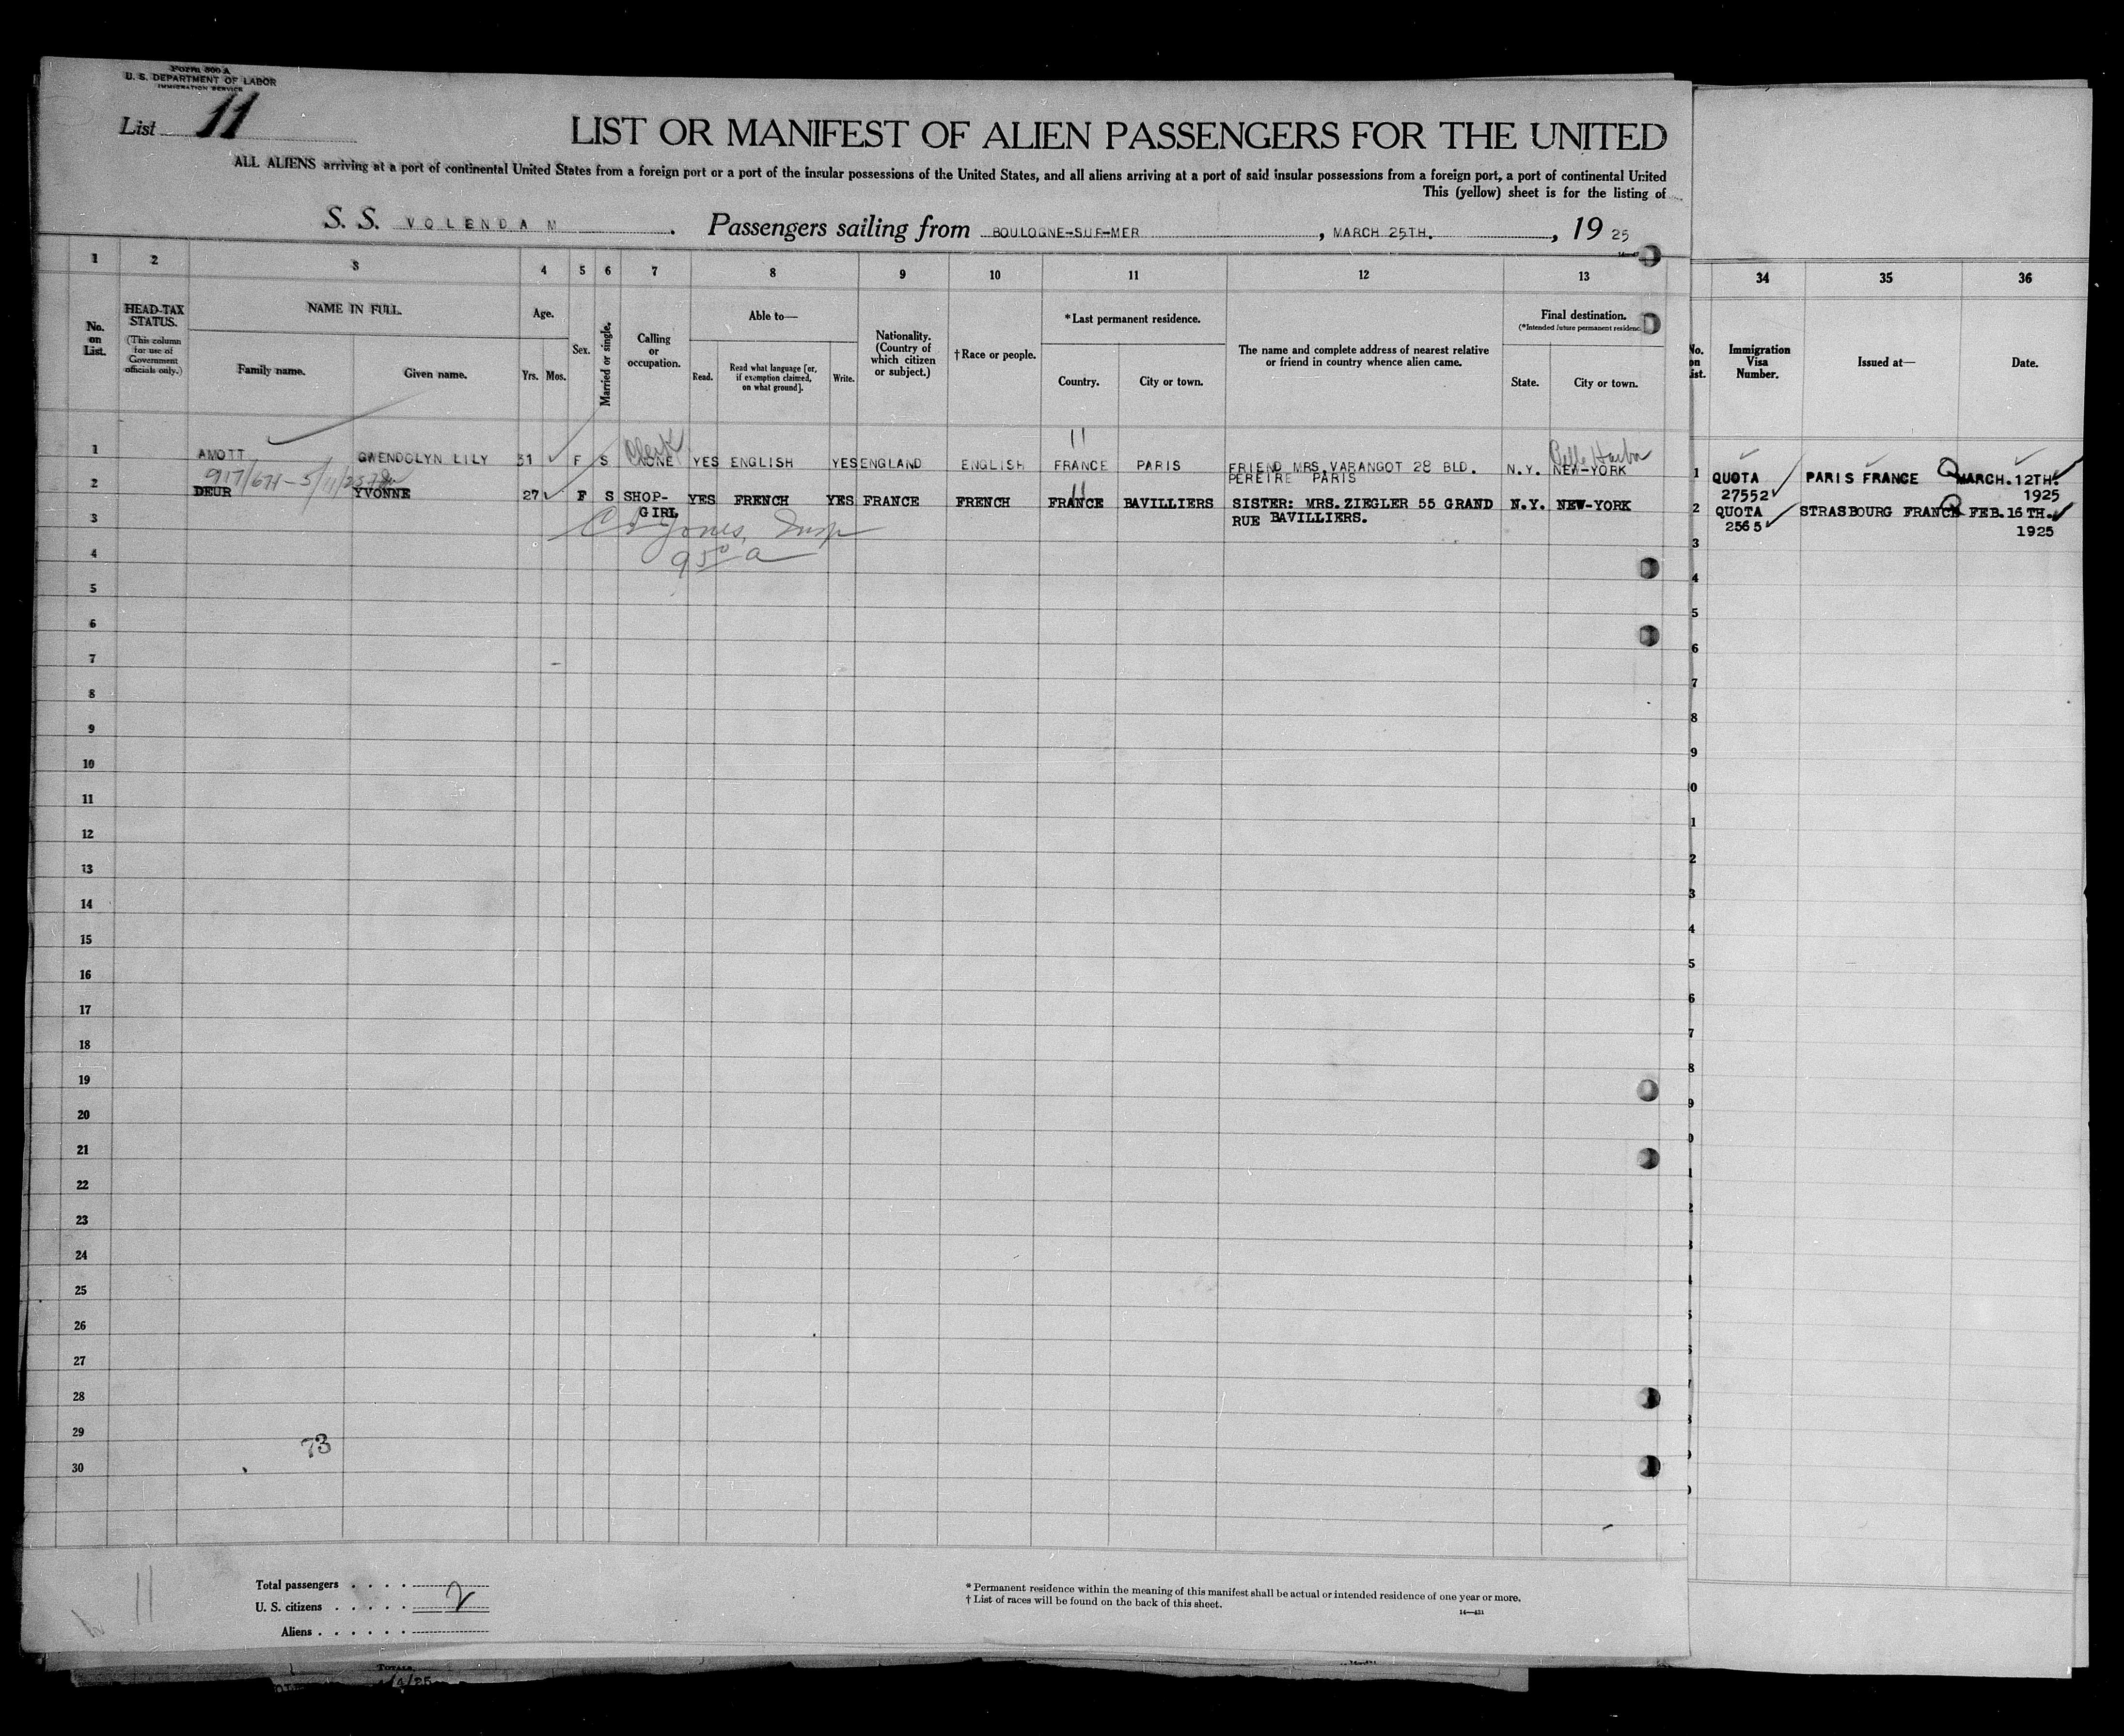 Form 500 A
U. S. DEPARTMENT OF LABOR
IMMIGRATION SERVICE
List 11
LIST OR MANIFEST OF ALIEN PASSENGERS FOR THE UNITED
ALL ALIENS arriving at a port of continental United States from a foreign port or a port of the insular possessions of the United States, and all aliens arriving at a port of said insular possessions from a foreign port, a port of continental United
This (yellow) sheet is for the listing of
S. S. VOLENDAM . Passengers sailing from BOULOGNE-SUR-MER , MARCH 25TH. , 19 25
1 2 3 4 5 6 7 8 9 10 11 12 13 34 35 36
No. on List.
HEAD-TAX STATUS.
(This column for use of Government officials only.)
NAME IN FULL.
Family name. Given name.
Age.
Yrs. Mos.
Sex.
Married or single.
Calling or occupation.
Able to—
Read. Read what language [or, if exemption claimed, on what ground]. Write.
Nationality. (Country of which citizen or subject.)
†Race or people.
*Last permanent residence.
Country. City or town.
The name and complete address of nearest relative or friend in country whence alien came.
Final destination.
(*Intended future permanent residence
State. City or town.
No. on ist.
Immigration Visa Number.
Issued at—
Date.
Clerk 11 Belle Harbor
1 AMOTT GWENDOLYN LILY 31 F S NONE YES ENGLISH YES ENGLAND ENGLISH FRANCE PARIS FRIEND MRS.VARANGOT 28 BLD. N.Y. NEW-YORK 1 QUOTA PARIS FRANCE Q MARCH.12TH.
PEREIRE PARIS 27552 1925
917/671-5/11/25
2 DEUR YVONNE 27 F S SHOP- YES FRENCH YES FRANCE FRENCH FRANCE BAVILLIERS SISTER: MRS.ZIEGLER 55 GRAND N.Y. NEW-YORK 2 QUOTA STRASBOURG FRANCE Q FEB.16TH.
GIRL RUE BAVILLIERS. 2565 1925
3 Jones, Insp 3
4 95 a 4
5 5
6 6
7 7
8 8
9 9
10 0
11 1
12 2
13 3
14 4
15 5
16 6
17 7
18 8
19 9
20 0
21
22
23
24
25
26
27
28
29
73
30
11
Total passengers . . . .
U. S. citizens . . . . . 2
Aliens . . . . . .
* Permanent residence within the meaning of this manifest shall be actual or intended residence of one year or more.
† List of races will be found on the back of this sheet.
14—431
TOTALS